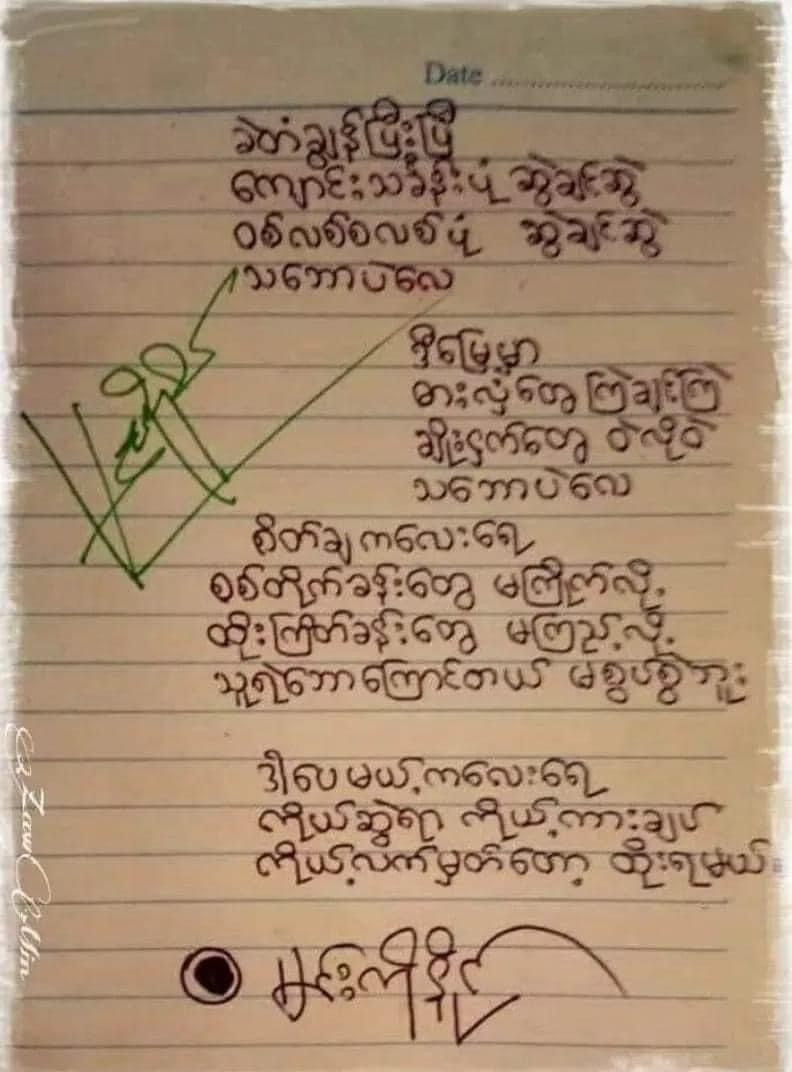 Date
ခဲတံချွန်ပြီးပြီ
ကျောင်းသင်ခန်းပုံ ဆွဲချင်ဆွဲ
ဝစ်လစ်စလစ်ပုံ ဆွဲချင်ဆွဲ
သဘောပဲလေ
ဒီမြေမှာ
ဓားလှံတွေ ကြဲချင်ကြဲ
ချိုးငှက်တွေ ဝဲလိုဝဲ
သဘောပဲလေ
စိတ်ချကလေးရေ
စစ်တိုက်ခန်းတွေ မကြိုက်လို့
ထိုးကြိတ်ခန်းတွေ မကြည့်လို့
သူရဲဘောကြောင်တယ် မစွပ်စွဲဘူး
ဒါပေမယ့်ကလေးရေ
ကိုယ်ဆွဲရာ ကိုယ့်ကားချပ်
ကိုယ့်လက်မှတ်တော့ ထိုးရမယ်
မင်းကိုနိုင်